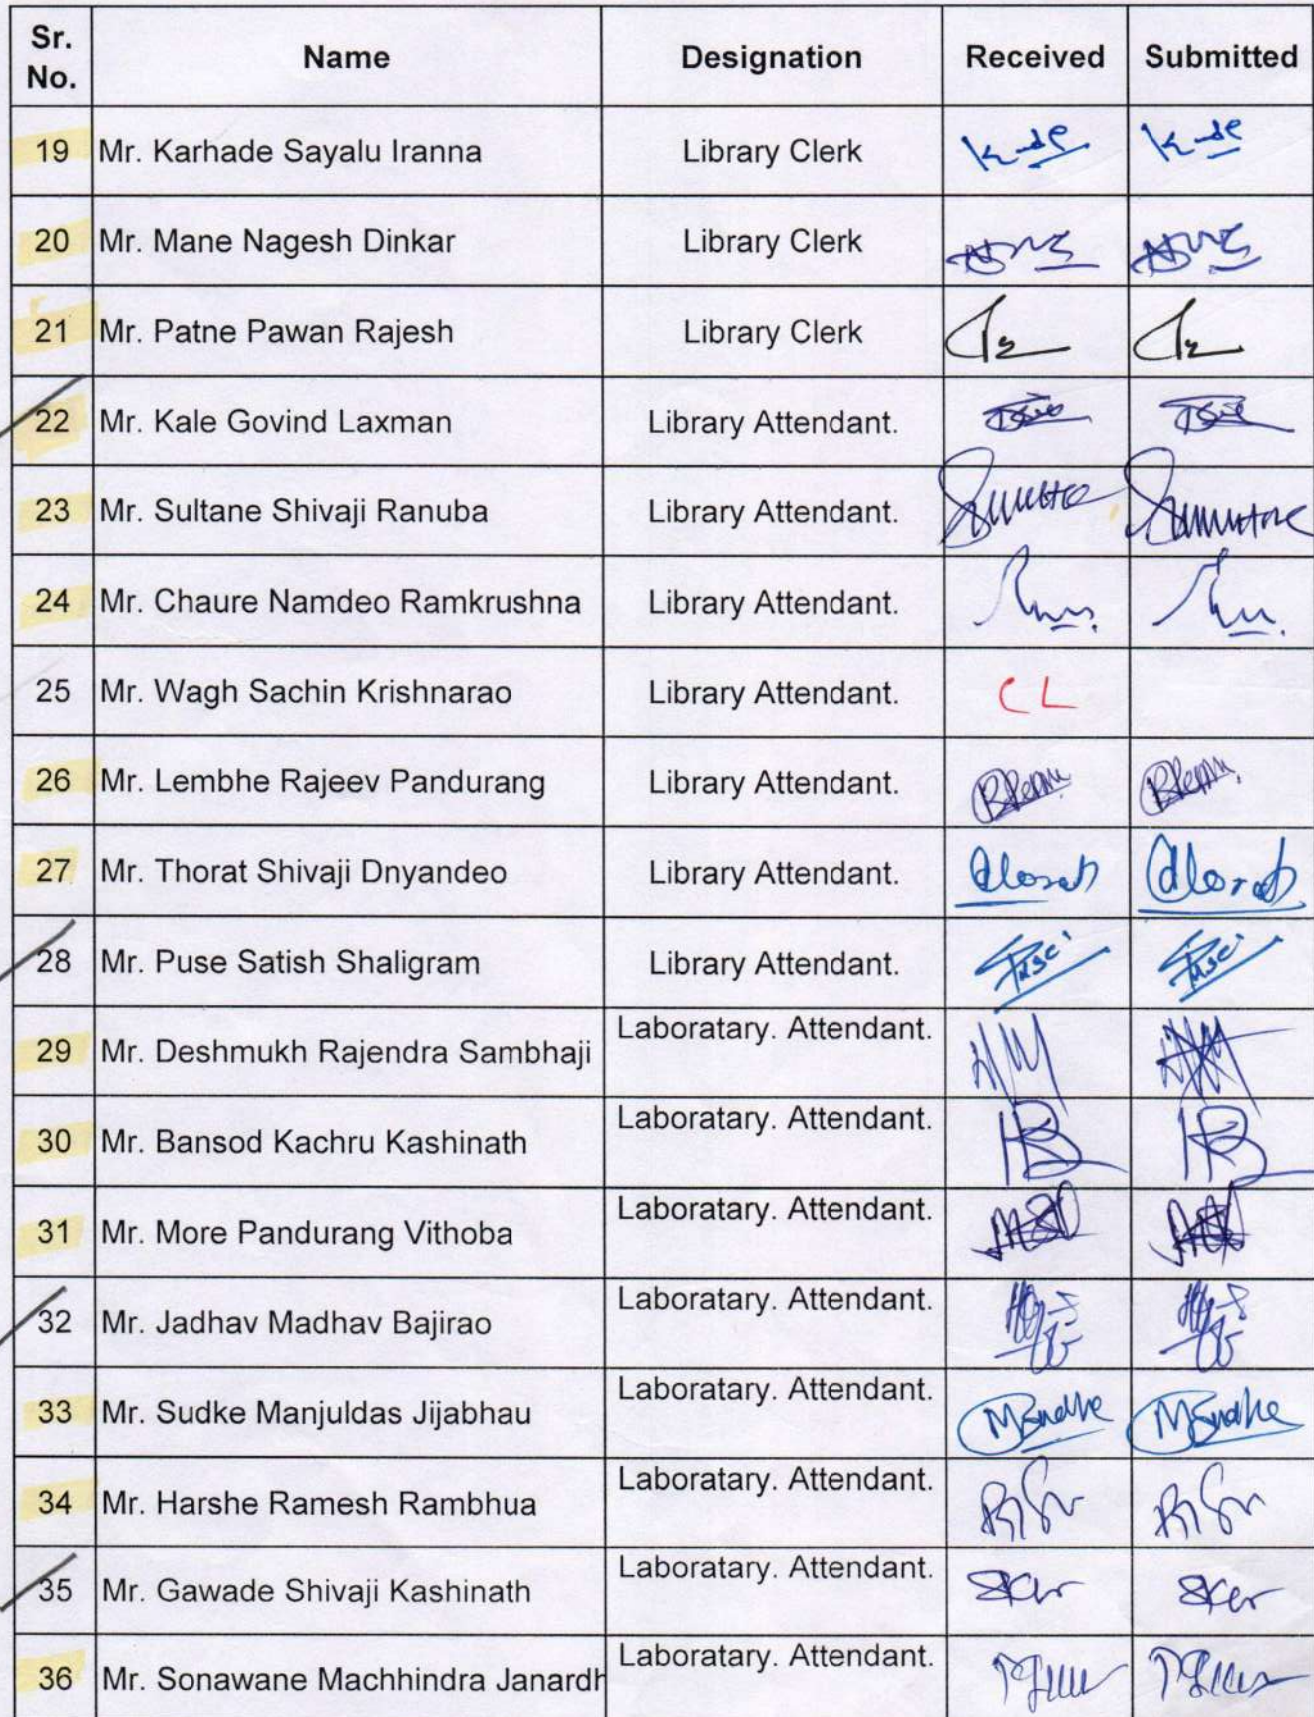 Sr. No. Name Designation Received Submitted
19 Mr. Karhade Sayalu Iranna Library Clerk
20 Mr. Mane Nagesh Dinkar Library Clerk
21 Mr. Patne Pawan Rajesh Library Clerk
22 Mr. Kale Govind Laxman Library Attendant.
23 Mr. Sultane Shivaji Ranuba Library Attendant.
24 Mr. Chaure Namdeo Ramkrushna Library Attendant.
25 Mr. Wagh Sachin Krishnarao Library Attendant. CL
26 Mr. Lembhe Rajeev Pandurang Library Attendant.
27 Mr. Thorat Shivaji Dnyandeo Library Attendant.
28 Mr. Puse Satish Shaligram Library Attendant.
29 Mr. Deshmukh Rajendra Sambhaji Laboratary. Attendant.
30 Mr. Bansod Kachru Kashinath Laboratary. Attendant.
31 Mr. More Pandurang Vithoba Laboratary. Attendant.
32 Mr. Jadhav Madhav Bajirao Laboratary. Attendant.
33 Mr. Sudke Manjuldas Jijabhau Laboratary. Attendant.
34 Mr. Harshe Ramesh Rambhua Laboratary. Attendant.
35 Mr. Gawade Shivaji Kashinath Laboratary. Attendant.
36 Mr. Sonawane Machhindra Janardh Laboratary. Attendant.